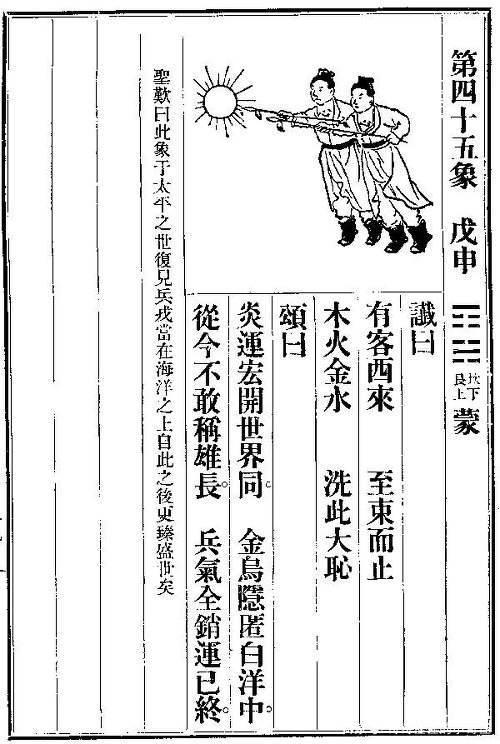 第四十五象 戊申 坎下艮上 蒙
讖曰
有客西來 至東而止
木火金水 洗此大恥
頌曰
炎運宏開世界同。 金烏隱匿白洋中
從今不敢稱雄長。 兵氣全銷運已終。
聖歎曰此象于太平之世復見兵戎當在海洋之上自此之後更臻盛世矣